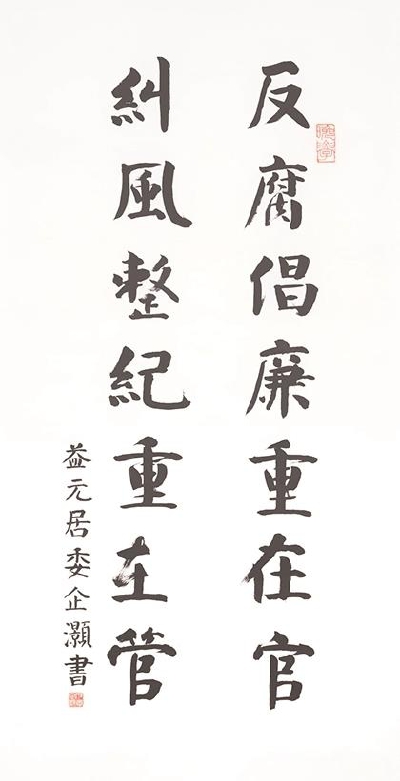 反腐倡廉重在官
糾風整紀重在管
益元居委企灏書